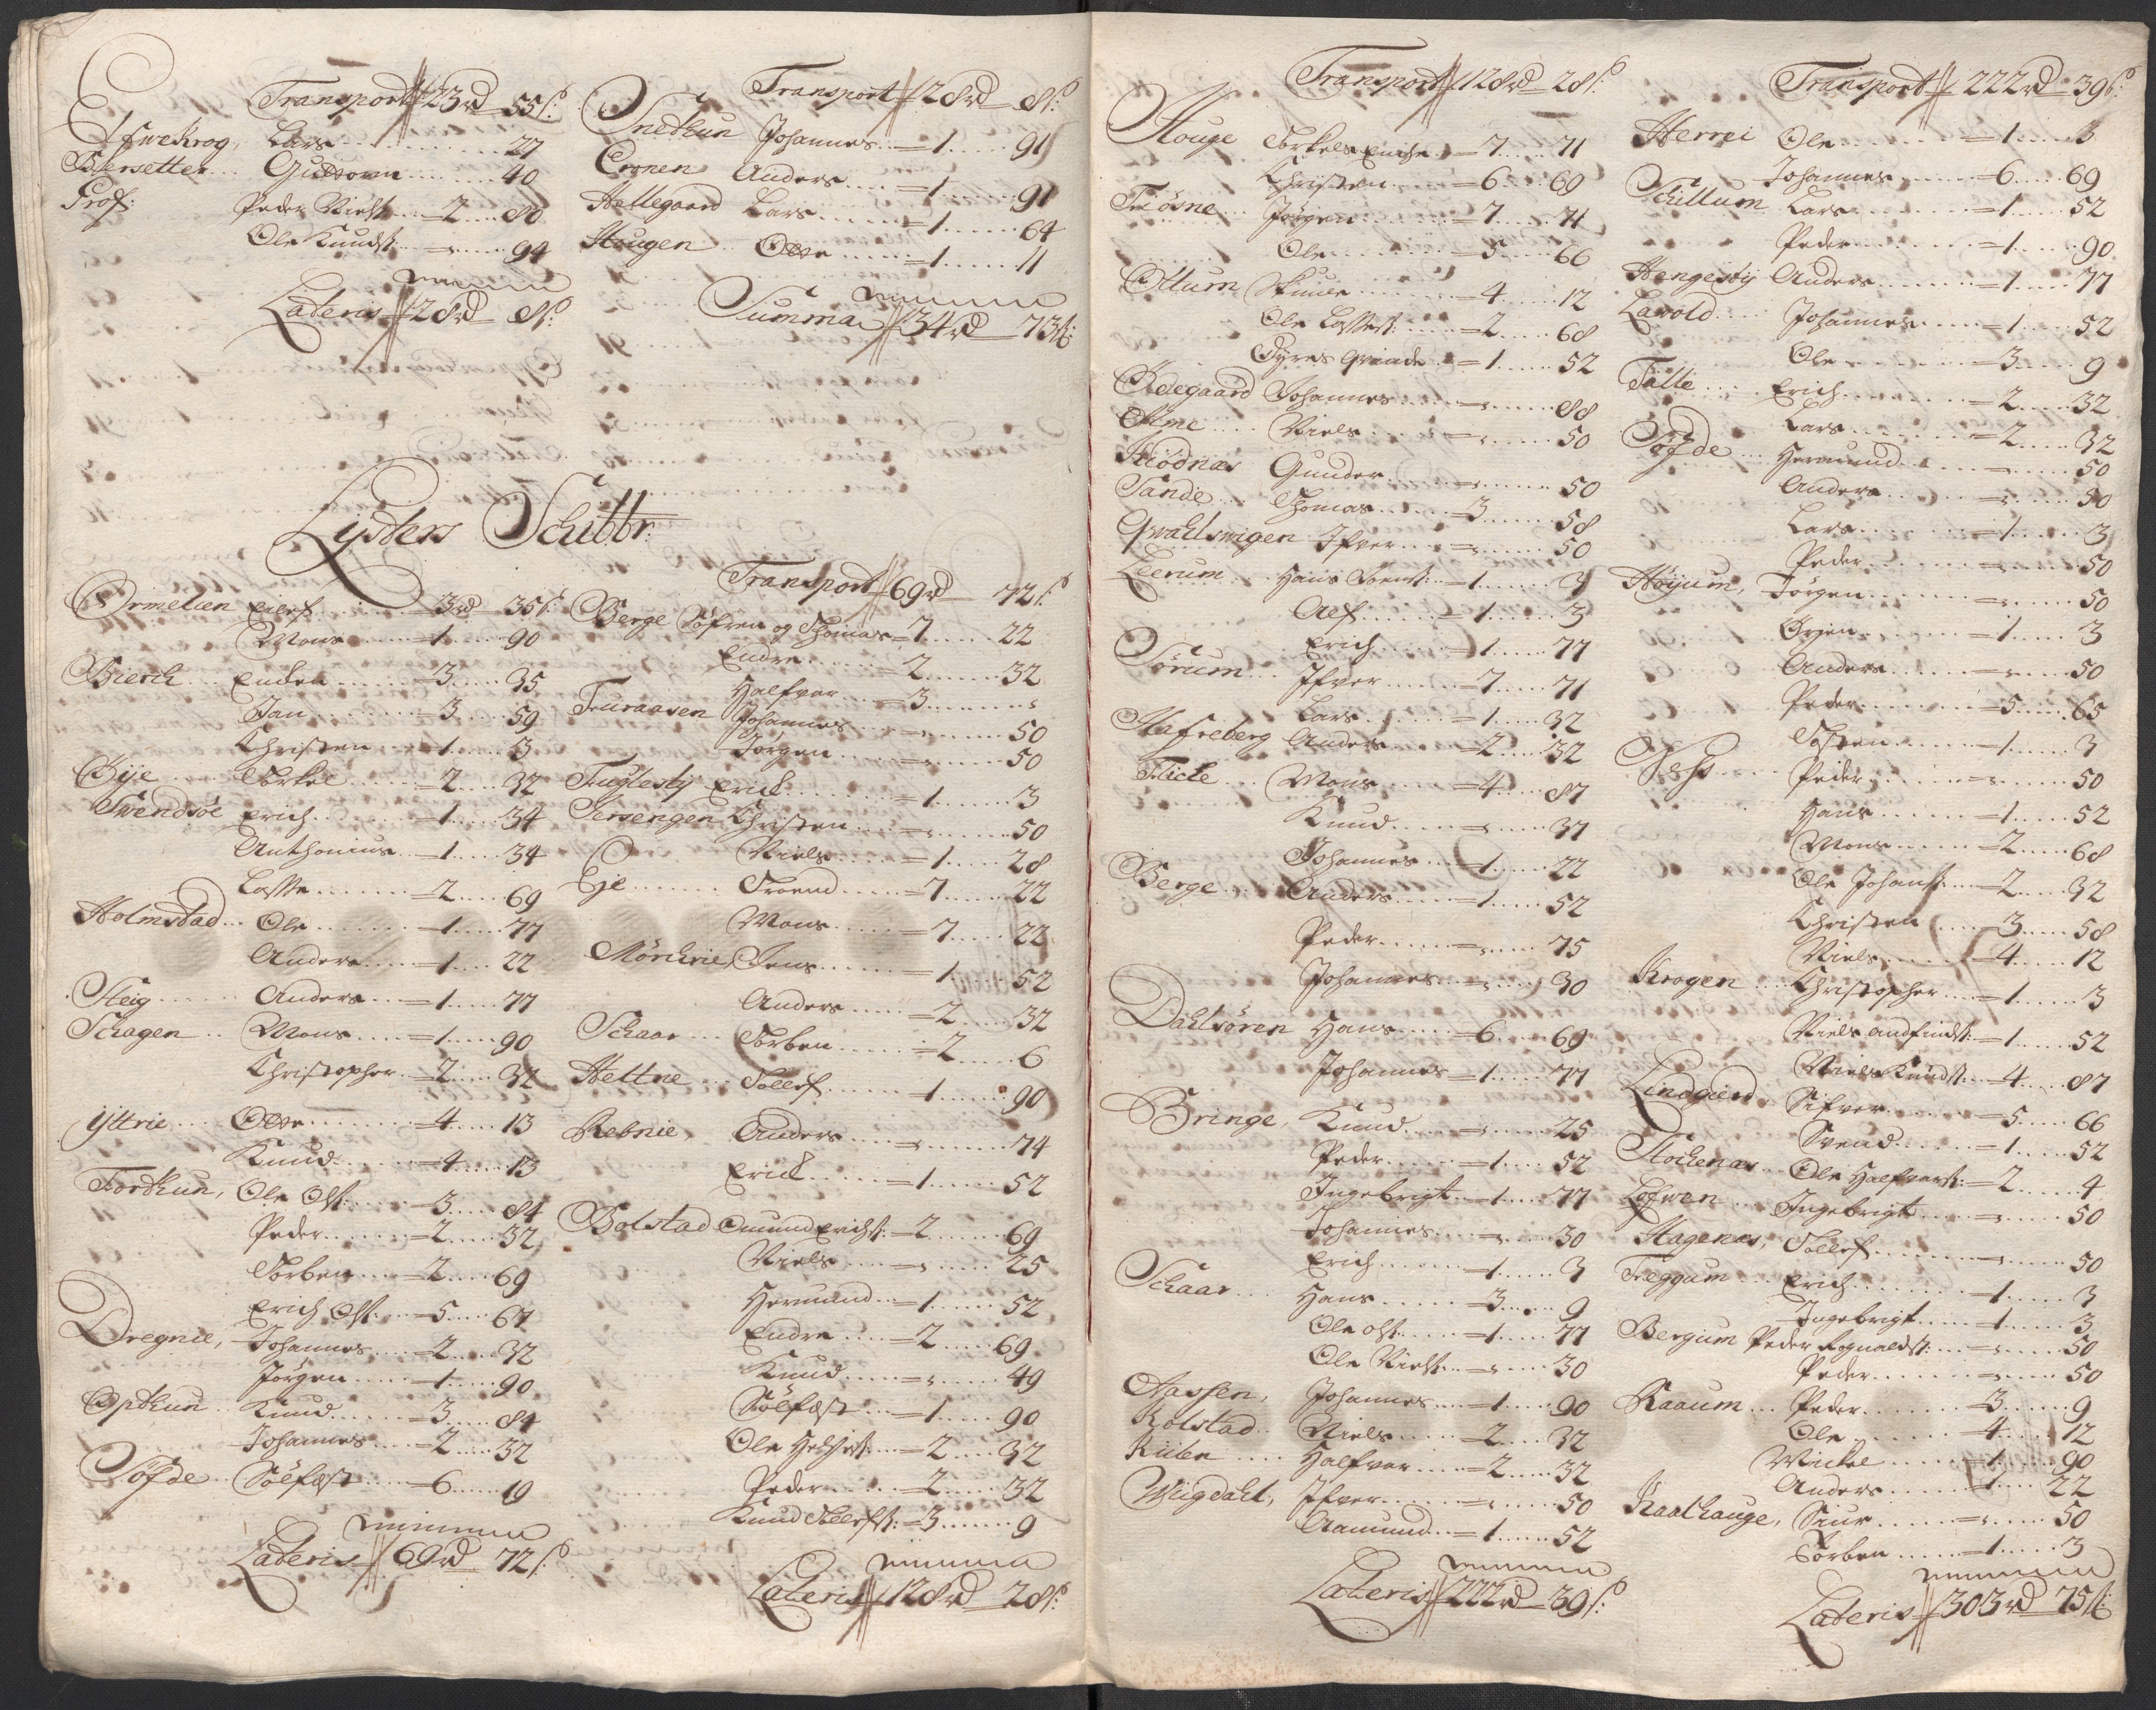 Transport 23rd 55ß:
Efwekrog, Lars 27
Bersetter Guttorm 40
Prof: Peder Nielß: 2 80
Ole Knudß: 94
Lateris 28rd 8ß:
Transport 28rd 8ß
Snetkun Johannes 1 91
Cronen Anders 1 91
Hellegaard Lars 1 64
Hougen Otte 1 11
Summa 34rd 73ß:
Lysters Schibbr:
Ormelien Eilef 3rd 35ß:
Mons 1 90
Bierck Enken 3 35
Jan 3 59
Christen 1 3
Øye Torkel 2 32
Svendsøe Erich 1 34
Anthonius 1 34
Lasse 2 69
Holmstad Ole 1 77
Anders 1 22
Steig Anders 1 77
Schagen Mons 1 90
Christopher 2 32
ÿttrie Otte 4 13
Knud 4 13
Fordkun, Ole Olß: 3 84
Peder 2 32
Torben 2 69
Erich Olß: 5 67
Dregnie, Johannes 2 32
Jørgen 1 90
Optkun Knud 3 84
Johannes 2 32
Søfde Sølfæst 6 19
Lateris 69rd 72ß:
Transport 69rd 72ß:
Berge Søfren og Thomas 7 22
Endre 2 32
Halfvor 3
Furaasen Johannes 50
Jørgen 50
Fuglestÿ Erich 1 3
Sersengen Christen 50
Niels 1 28
Eje Troend 7 22
Mons 7 22
Mørchrie, Jens 1 52
Anders 2 32
Schaar Torben 2 6
Hettne Tollef 1 90
Rebnie, Anders 74
Erich 1 52
Bolstad Omund Erichß: 2 69
Niels 25
Hermund 1 52
Endre 2 69
Knud 49
Sølfæst 1 90
Ole Helgeß: 2 32
Peder 2 32
Knud Tollefß: 3 9
Lateris 128rd 28ß:
Transport 128rd 28ß:
Houge Torkels Enche 7 71
Christen 6 69
Fløsne Jørgen 7 71
Ole 5 66
Ottum Skiule 4 12
Ole Lasseß: 2 68
Gyres Qvinde 1 52
Ødegaard Johannes 88
Alme Niels 50
Kiødnæs Gunder 50
Sande Thomas 3 58
Qvahlswigen Ifver 50
Leerum Hans 1 3
Alf 1 3
Erich 1 77
Sørum Ifver 7 71
Lars 1 32
Hafreberg Anders 2 32
Flicke Mons 4 87
Knud 37
Johannes 1 22
Berge Anders 1 52
Peder 75
Johannes 30
Dahlsøren Hans 6 69
Johannes 1 77
Bringe, Knud 25
Peder 1 52
Ingebrigt 1 77
Johannes 30
Erich 1 3
Schaar Hans 3 9
Ole Olß: 1 77
Ole Nielß: 30
Aassen, Johannes 1 90
Kolstad Niels 2 32
Kiiben Halfvor 2 32
Wiigdahl, Ifver 50
Aamund 1 52
Lateris 222rd 39ß:
Transport 222rd 39ß:
Herrei Ole 1 3
Johannes 6 69
Schittum Lars 1 52
Peder 1 90
Hengestÿ Anders 1 77
Lavold Johannes 1 52
Ole 3 9
Talle Erich 2 32
Lars 2 32
Søfde Hermund 50
Anders 50
Lars 1 3
Peder 50
Høyum, Jørgen 50
Ørjen 1 3
Anders 50
Peder 5 65
Tosten 1 3
Peder 50
Hans 1 52
Mons 2 68
Ole Johanß: 2 32
Christen 3 58
Niels 4 12
Krogen Christopher 1 3
Niels Andfindß: 1 52
Niels Knudß: 4 87
Lindgierd Sifver 5 66
Svend 1 52
Stockenæs Ole Halfvorß: 2 4
Lofwen Ingebrigt 50
Hagenæs, Tollef 50
Freggum Erich 1 3
Ingebrigt 1 3
Bergum Peder Rognaldß: 50
Peder 50
Raaum Peder 3 9
Ole 4 12
Michel 1 90
Anders 1 22
Kaalhauge, Siur 50
Torben 1 3
Lateris 303rd 75ß: